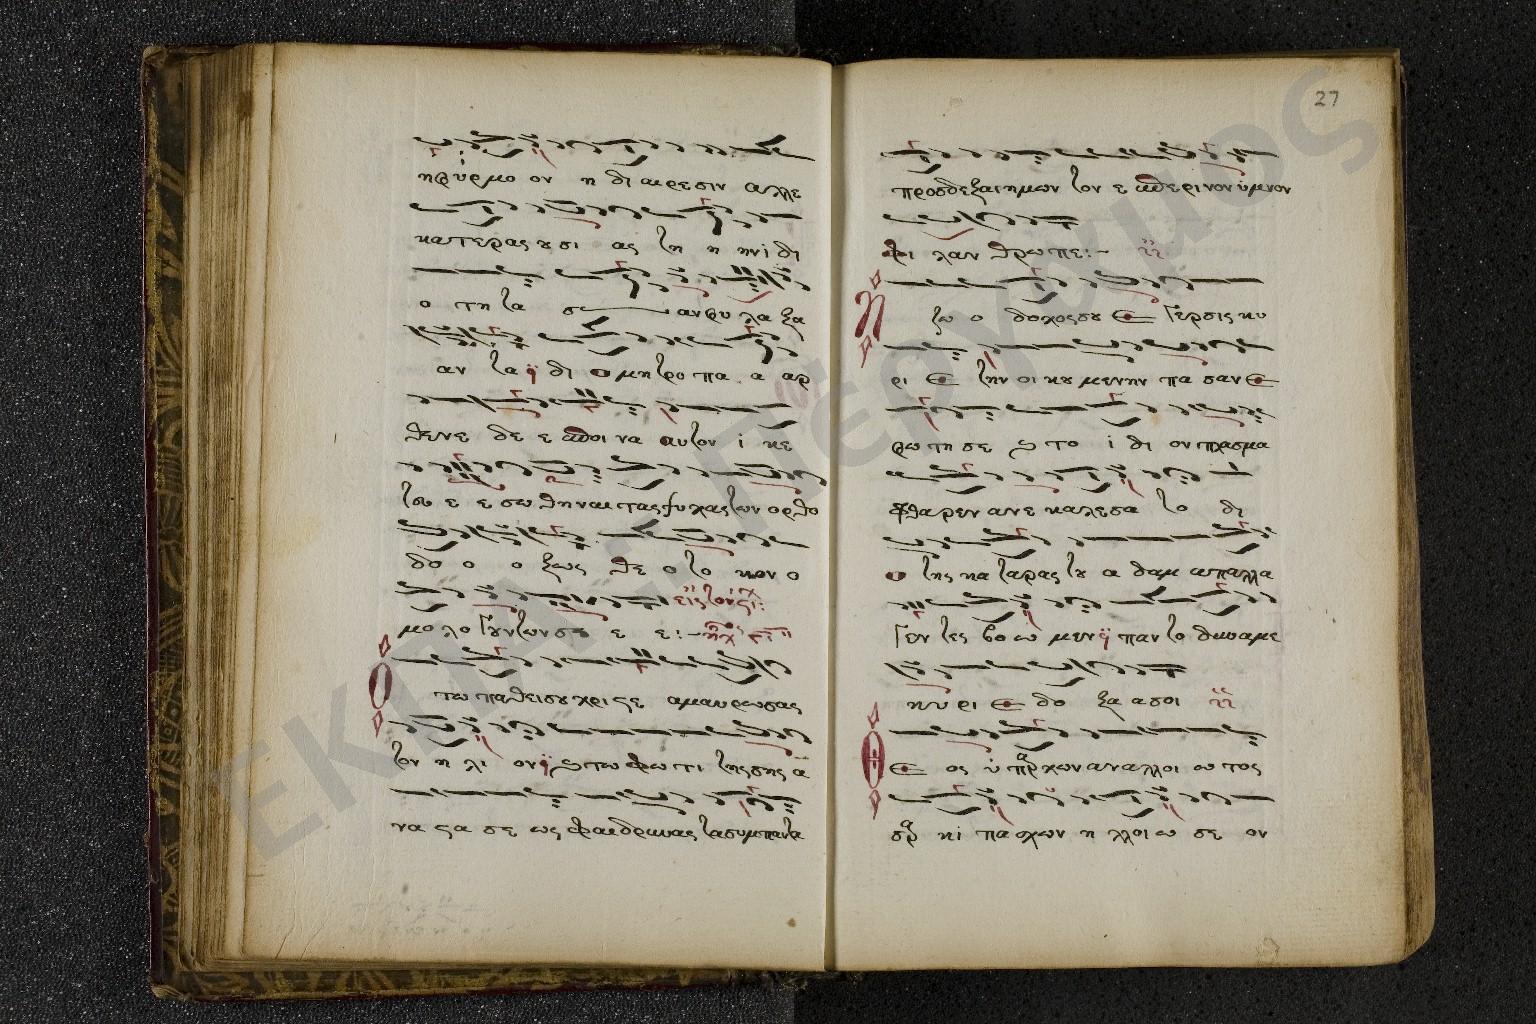 27
ηφυρμο ον η δι αιρεσιν αλλε
κατερας ου σι ας τη η ηνι δι
ο τη τα σ αν φυ λα ξα
αν τα δι ο μητρο πα α αρ
θενε δε ε ωποι να αυτον ι κε
τευ ε ε σω θη ναι τας ψυχας των ορθο
δο ο ο ξως θε ο το κον ο
μολο γουντων σ ε ε :- ηχ
εις τον στι:
Ο τω παθει σου χρι στε αμαυρωσας
τον η λι ον ϗ τω φω τι της σης α
να στα σε ως φαιδρυνας τα συμπαντα
προσδεξαι ημων τον ε σπερι νον ύμνον
φι λαν θρωπε :-
Η ζω ο δοχος σου Ε γερσις κυ
ρι Ε την οι κου μενην πα σαν Ε
φω τη σε ϗ το ι δι ον πλασμα
φθαρεν ανε καλεσα το δι
ο της κα ταρας του α δαμ απαλλα
γεν τες βο ω μεν παν το δυναμε
κυ ρι Ε δο ξα α σοι
Θ Ε ος ύ παρχων αναλλοι ω τος
σαρ κι πα σχων η λλοι ω σε ον
ΕΚΠΑ | Πέργαμος